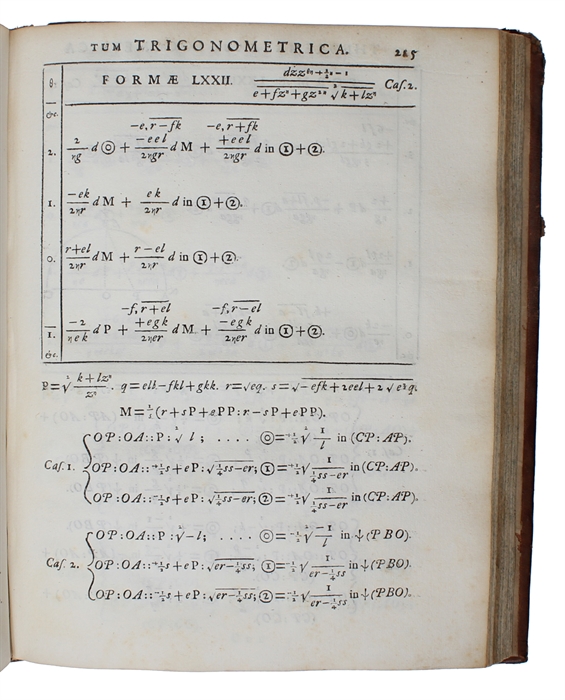 TUM TRIGONOMETRICA. 225
θ. FORMÆ LXXII. dżz^{θη+½η−1} / e+fz^η+gz^{2η} √k+lz^η Caſ. 2.
&c.
−e, r−fk −e, r+fk
2. 2/ηg d⊙ + −eel/2ηgr dM + +eel/2ηgr d in ①+②.
1. −ek/2ηr dM + ek/2ηr d in ①+②.
0. r+el/2ηr dM + r−el/2ηr d in ①+②.
−f, r+el −f, r−el
1. −2/ηek dP + +egk/2ηer dM + −egk/2ηer d in ①+②.
&c.
P=√ k+lz^η / z^η . q=ell−fkl+gkk. r=√eq. s=√−efk+2eel+2√e³q.
M=½(r+sP+ePP:r−sP+ePP).
Caſ. 1.
OP:OA::P:√l; .... ⊙=−½√ 1/l in (CP:AP).
OP:OA::+½s+eP:√¼ss−er; ①=−½√ 1/¼ss−er in (CP:AP).
OP:OA::−½s+eP:√¼ss−er; ②=−½√ 1/¼ss−er in (CP:AP).
Caſ. 2.
OP:OA::P:√−l; .... ⊙=−½√ −1/l in ⍦(PBO).
OP:OA::+½s+eP:√er−¼ss; ①=−½√ 1/er−¼ss in ⍦(PBO).
OP:OA::−½s+eP:√er−¼ss; ②=−½√ 1/er−¼ss in ⍦(PBO).